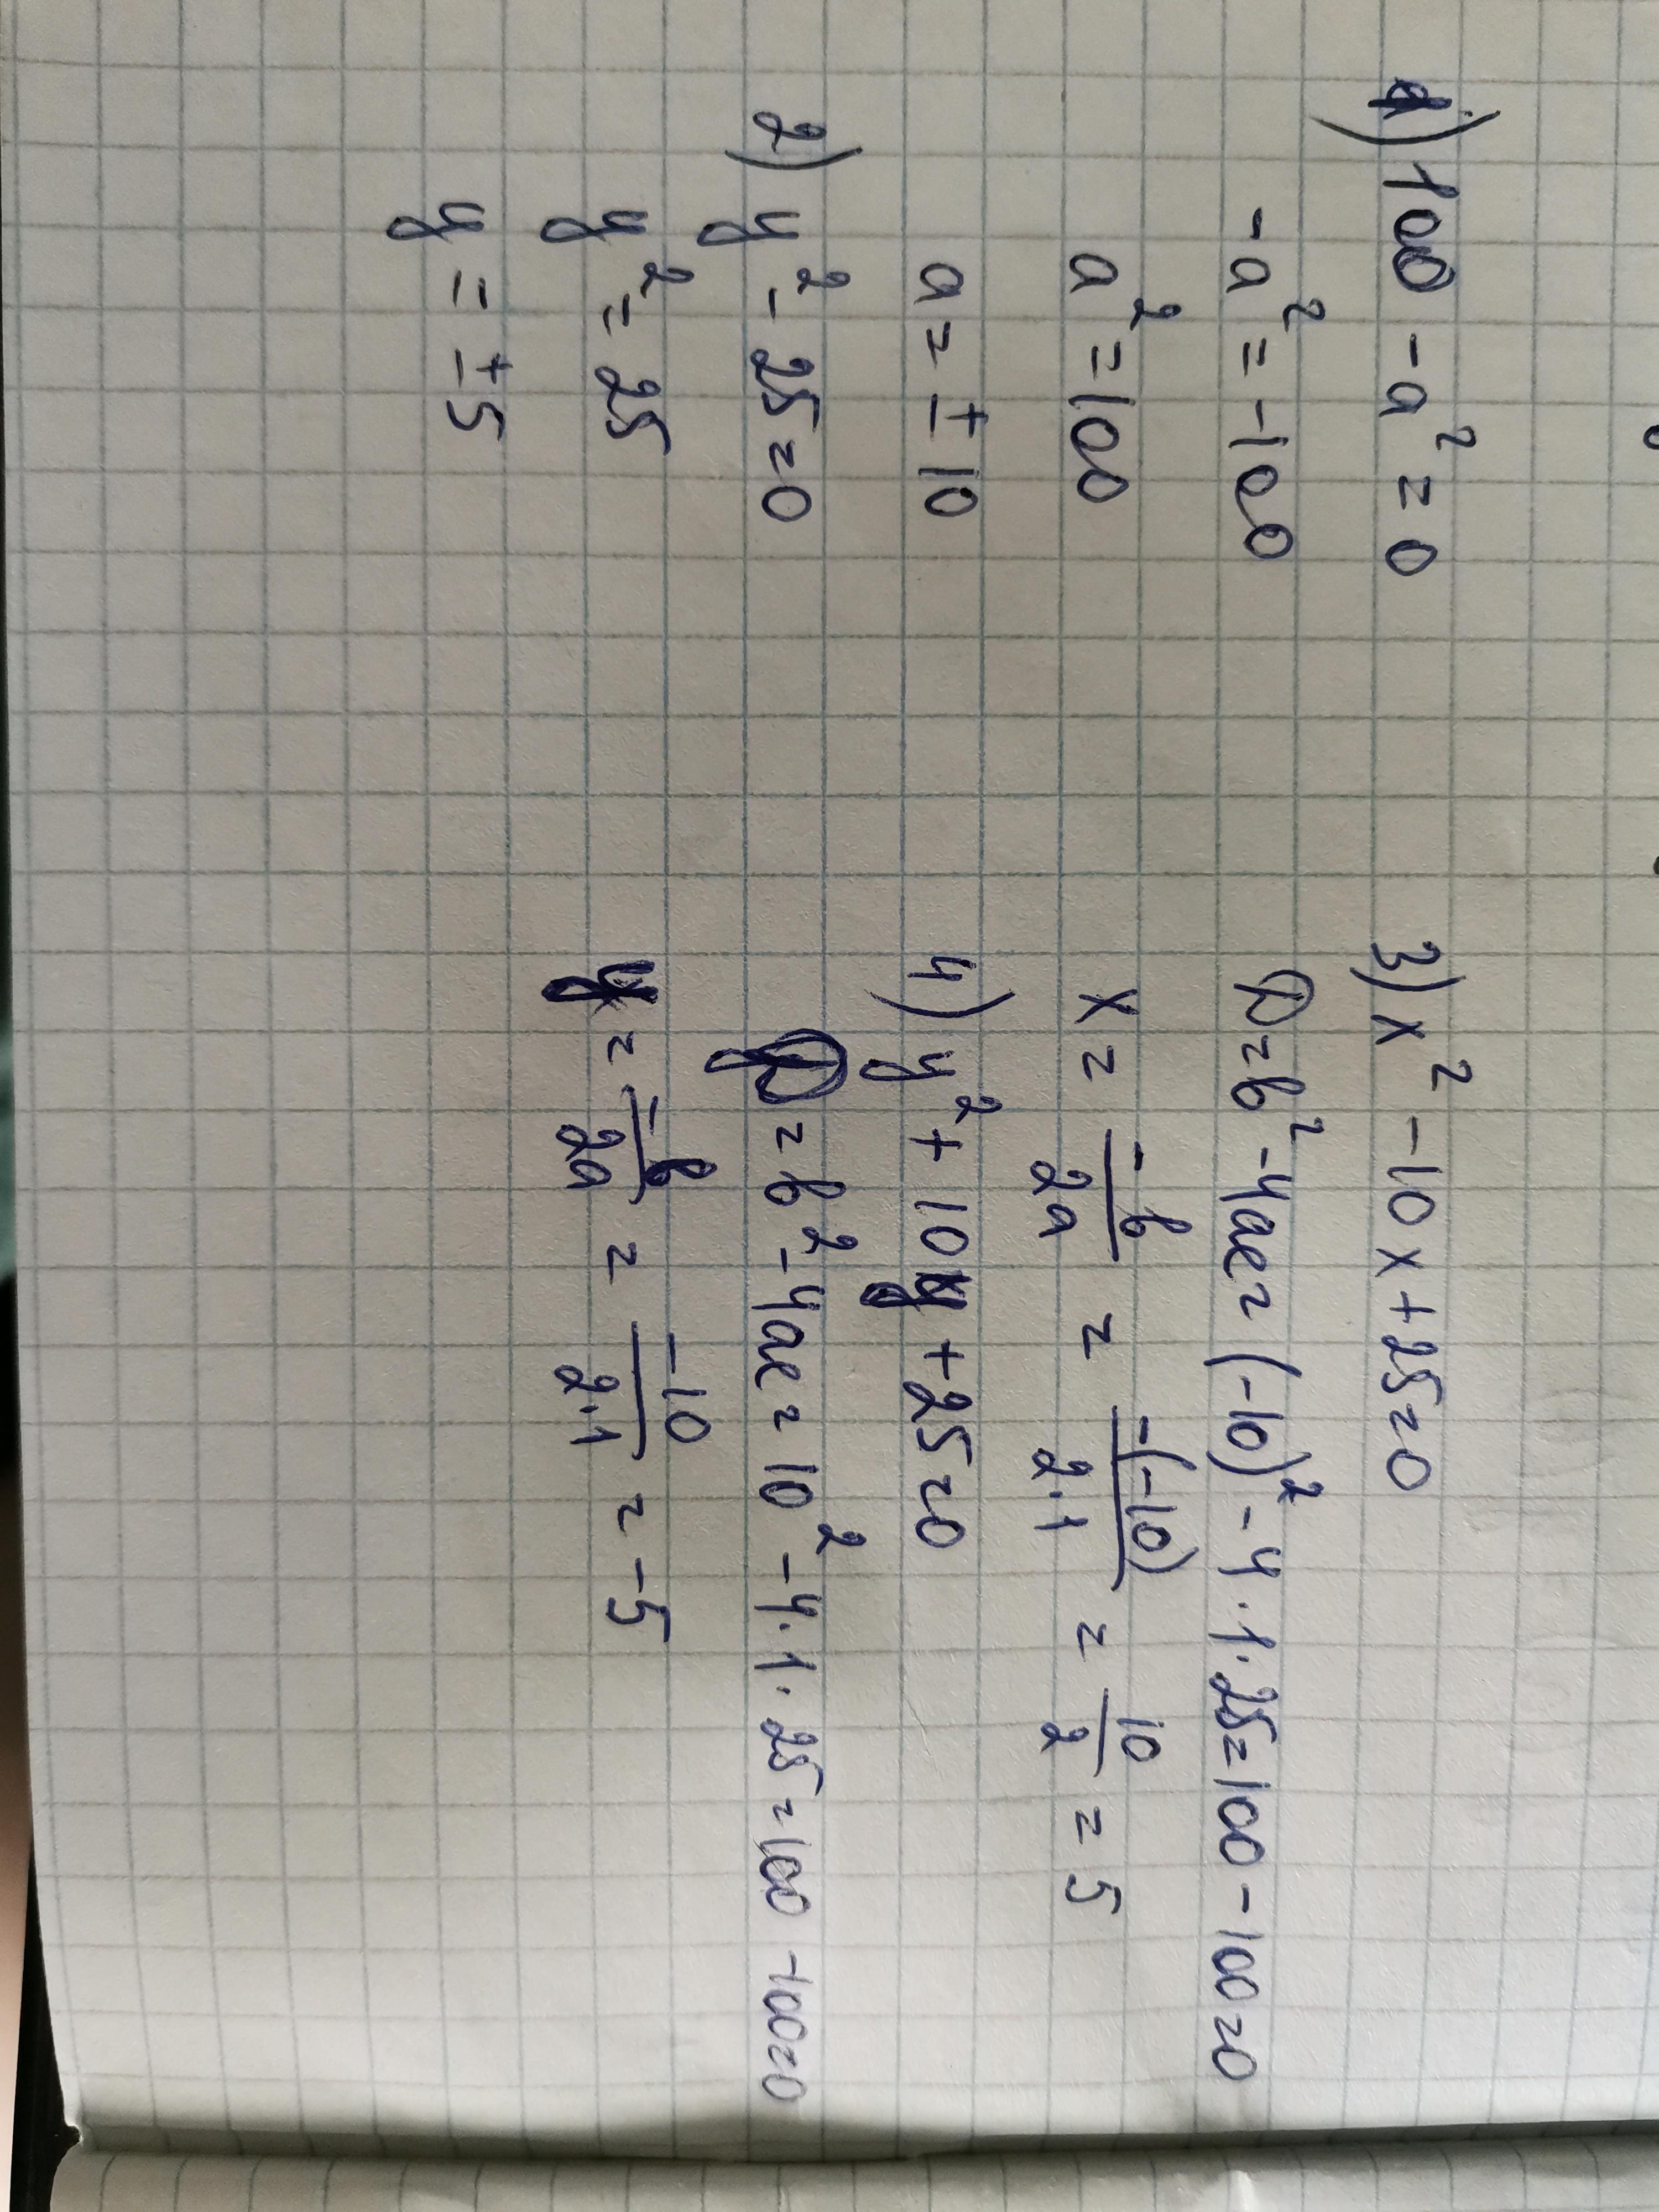 1) 100 - a² = 0
- a² = -100
a² = 100
a = ± 10
2) y² - 25 = 0
y² = 25
y = ± 5
3) x² - 10x + 25 = 0
D = b² - 4ac = (-10)² - 4 · 1 · 25 = 100 - 100 = 0
x = -b/2a = -(-10)/2·1 = 10/2 = 5
4) y² + 10y + 25 = 0
D = b² - 4ac = 10² - 4 · 1 · 25 = 100 - 100 = 0
y = -b/2a = -10/2·1 = -5